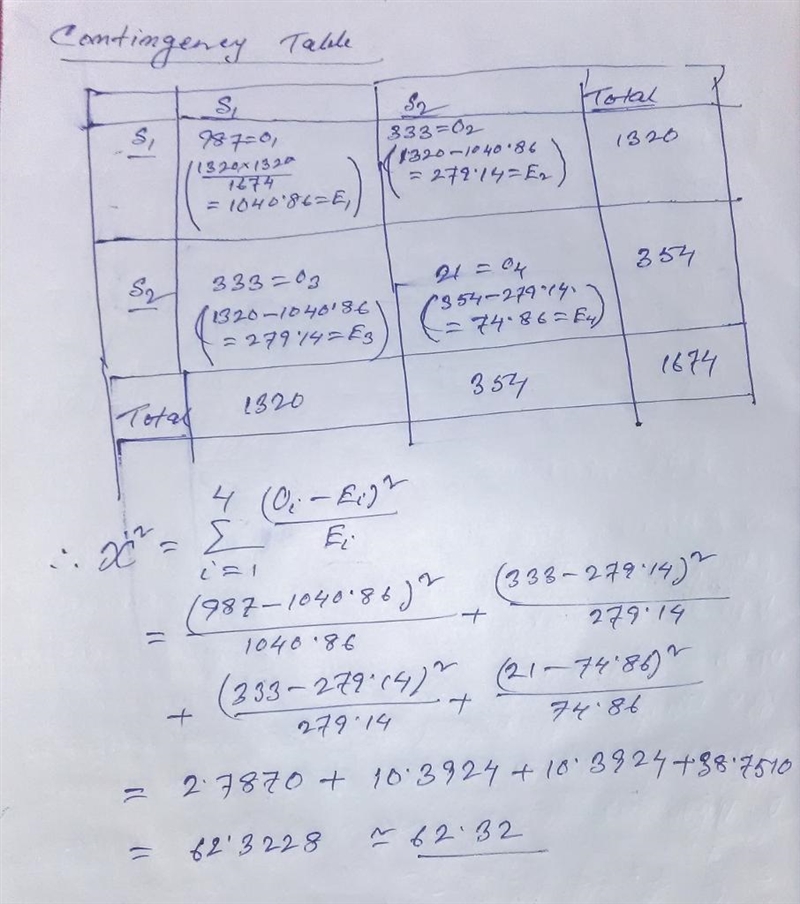 Contingency Table
S₁ S₂ Total
S₁ 987=O₁ 333=O₂ 1320
(1320×1320/1674 = 1040.86=E₁) (1320-1040.86 = 279.14=E₂)
S₂ 333=O₃ 21=O₄ 354
(1320-1040.86 = 279.14=E₃) (354-279.14. = 74.86=E₄)
Total 1320 354 1674
∴ χ² = Σ i=1 4 (Oᵢ - Eᵢ)²/Eᵢ
= (987-1040.86)²/1040.86 + (333-279.14)²/279.14
+ (333-279.14)²/279.14 + (21-74.86)²/74.86
= 2.7870 + 10.3924 + 10.3924 + 38.7510
= 62.3228 ≃ 62.32